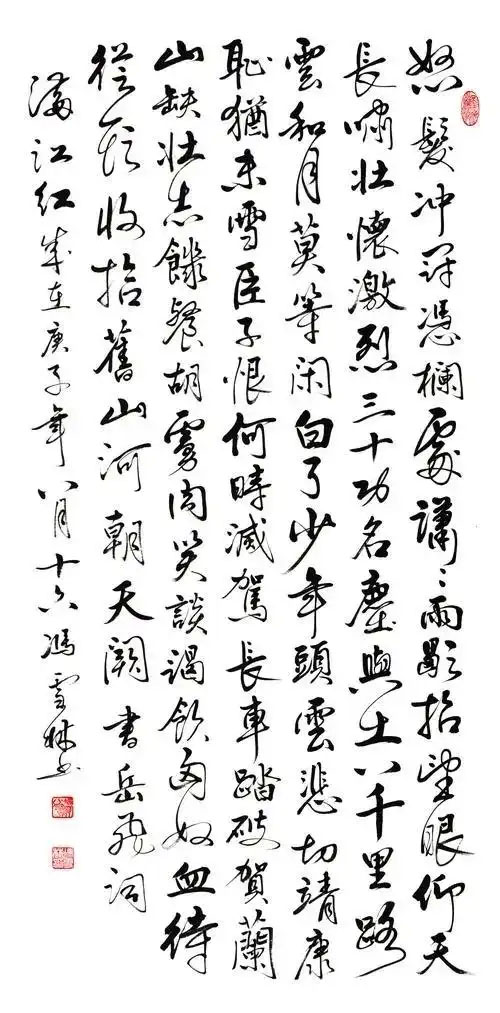 怒髮冲冠憑欄處瀟々雨歇抬望眼仰天
長嘯壯懷激烈三十功名塵與土八千里路
雲和月莫等閑白了少年頭雲悲切靖康
恥猶未雪臣子恨何時滅駕長車踏破賀蘭
山缺壯志饑餐胡虜肉笑談渴飲匈奴血待
從頭收拾舊山河朝天闕書岳飛詞
滿江紅歲在庚子年八月十六馮雪林書